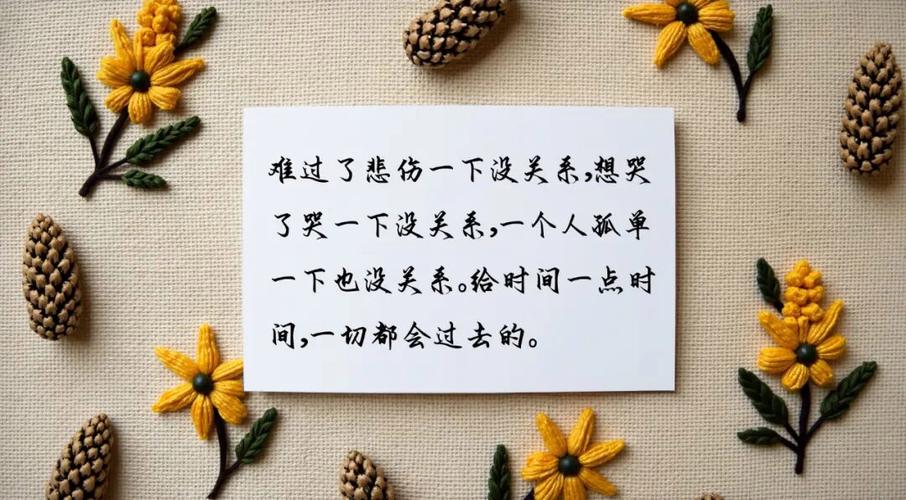 难过了悲伤一下没关系,想哭
了哭一下没关系,一个人孤单
一下也没关系。给时间一点时
间,一切都会过去的。